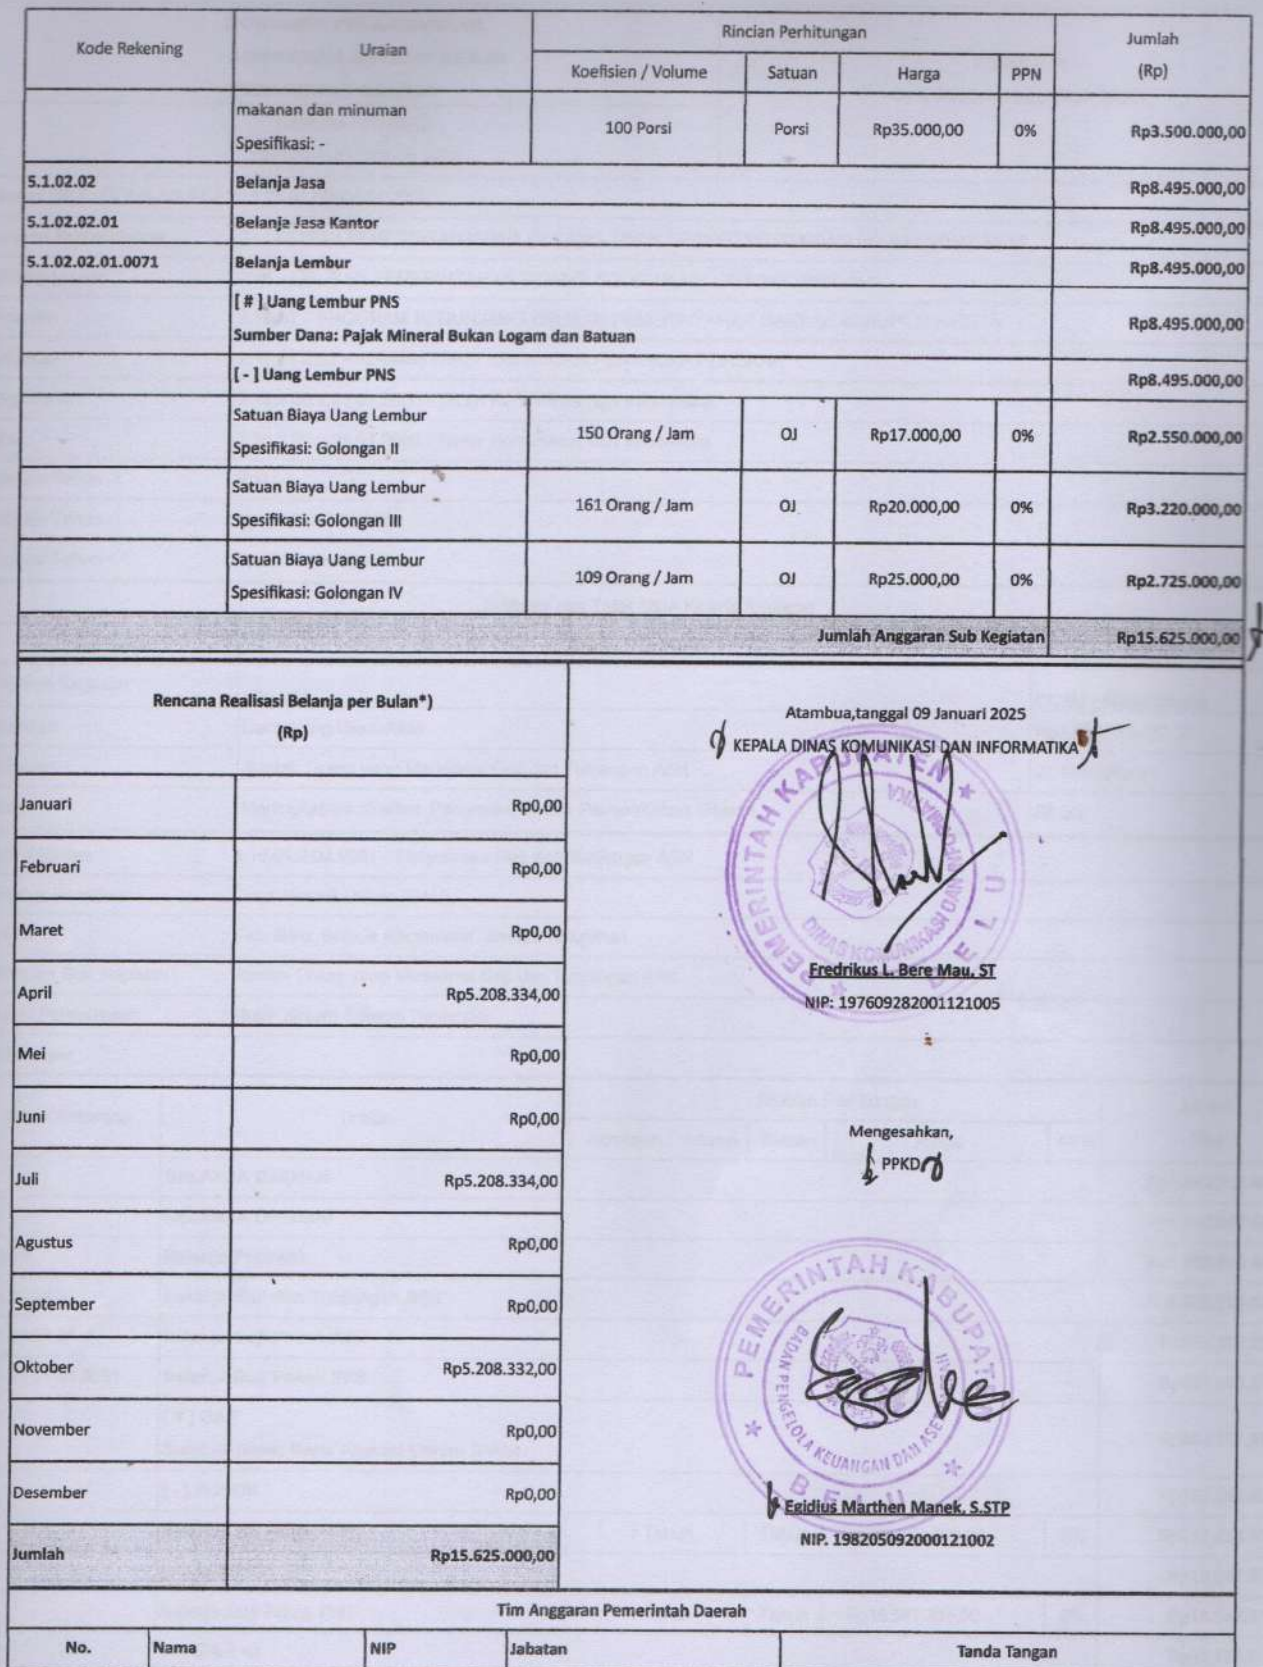 Kode Rekening Uraian Rincian Perhitungan Jumlah (Rp)
Koefisien / Volume Satuan Harga PPN
makanan dan minuman
Spesifikasi: -
100 Porsi Porsi Rp35.000,00 0% Rp3.500.000,00
5.1.02.02 Belanja Jasa Rp8.495.000,00
5.1.02.02.01 Belanja Jasa Kantor Rp8.495.000,00
5.1.02.02.01.0071 Belanja Lembur Rp8.495.000,00
[ # ] Uang Lembur PNS
Sumber Dana: Pajak Mineral Bukan Logam dan Batuan
Rp8.495.000,00
[ - ] Uang Lembur PNS Rp8.495.000,00
Satuan Biaya Uang Lembur
Spesifikasi: Golongan II
150 Orang / Jam OJ Rp17.000,00 0% Rp2.550.000,00
Satuan Biaya Uang Lembur
Spesifikasi: Golongan III
161 Orang / Jam OJ Rp20.000,00 0% Rp3.220.000,00
Satuan Biaya Uang Lembur
Spesifikasi: Golongan IV
109 Orang / Jam OJ Rp25.000,00 0% Rp2.725.000,00
Jumlah Anggaran Sub Kegiatan Rp15.625.000,00
Rencana Realisasi Belanja per Bulan*)
(Rp)
Januari Rp0,00
Februari Rp0,00
Maret Rp0,00
April Rp5.208.334,00
Mei Rp0,00
Juni Rp0,00
Juli Rp5.208.334,00
Agustus Rp0,00
September Rp0,00
Oktober Rp5.208.332,00
November Rp0,00
Desember Rp0,00
Jumlah Rp15.625.000,00
Atambua,tanggal 09 Januari 2025
KEPALA DINAS KOMUNIKASI DAN INFORMATIKA
PEMERINTAH KABUPATEN
BELU
DINAS KOMUNIKASI DAN INFORMATIKA
Fredrikus L. Bere Mau, ST
NIP: 197609282001121005
Mengesahkan,
PPKD
PEMERINTAH KABUPATEN
BELU
BADAN PENGELOLA KEUANGAN DAN ASET
Egidius Marthen Manek, S.STP
NIP. 198205092000121002
Tim Anggaran Pemerintah Daerah
No. Nama NIP Jabatan Tanda Tangan